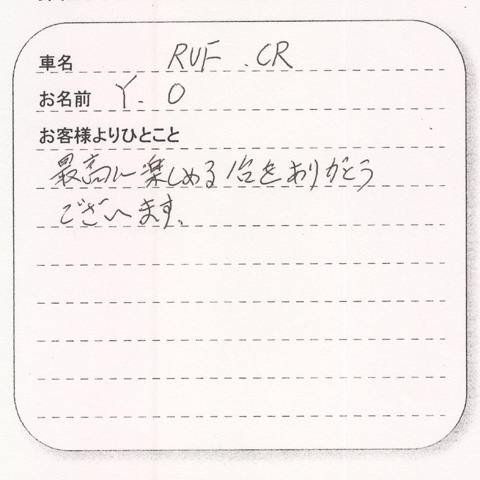 車名 RUF . CR
お名前 Y. O
お客様よりひとこと
最高に楽しめる1台をありがとう
ございます。